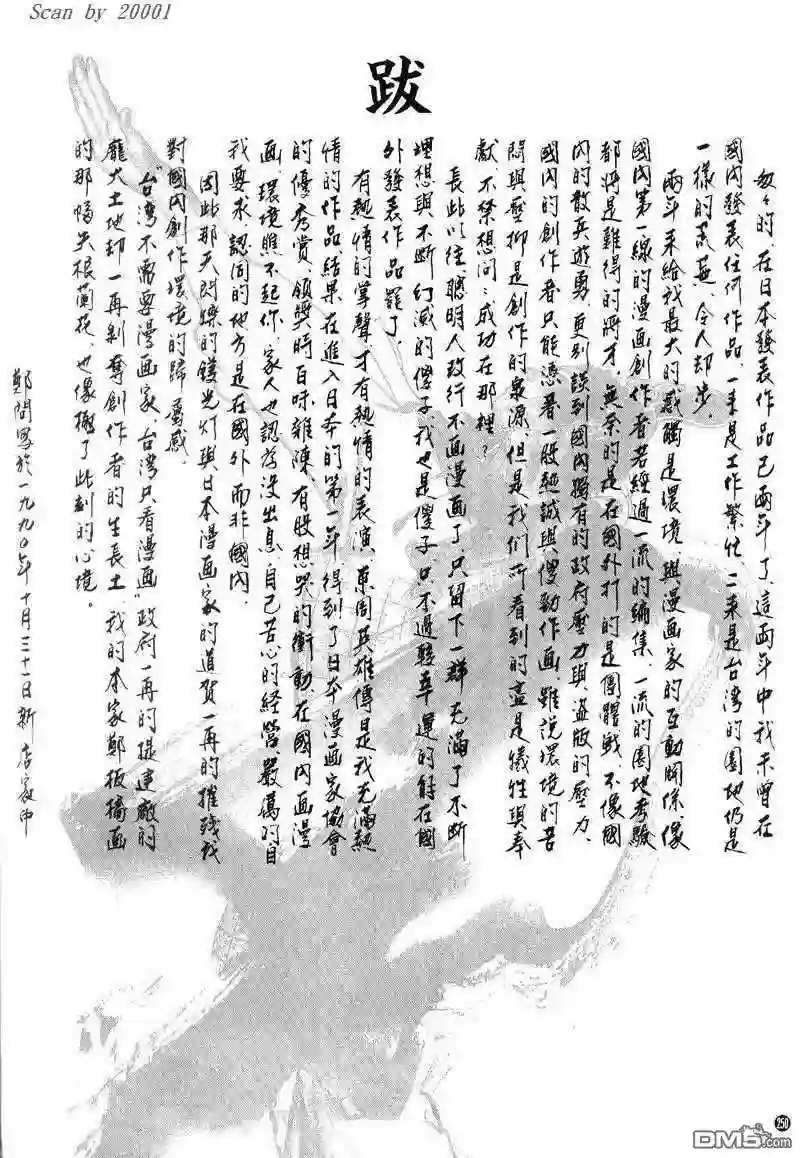 Scan by 20001
跋
匆々的，在日本發表作品已兩年了，這兩年中我未曾在
國內發表任何作品，一來是工作繁忙，二來是台湾的園地仍是
一樣的荒蕪，令人却步。
兩年來給我最大的感觸是環境，與漫画家的互動關係，像
國內第一線的漫画創作者若經過一流的編集、一流的園地考驗
都將是難得的將才，無奈的是在國外打的是團體戰，不像國
內的散兵遊勇，更別談到國內獨有的政府壓力與盜版的壓力，
國內的創作者只能憑著一股熱誠與傻勁作画，雖說環境的苦
悶與壓抑是創作的泉源，但是我們所看到的盡是犧牲與奉
獻，不禁想問：成功在那裡？
長此以往，聰明人改行不画漫画了，只留下一群充滿了不斷
理想與不斷幻滅的傻子，我也是傻子，只不過較幸運的能在國
外發表作品罷了。
有熱情的掌聲，才有熱情的表演，東周英雄傳是我充滿熱
情的作品，結果在進入日本的第一年，得到了日本漫画家協會
的優秀賞，領獎時百味雜陳，有股想哭的衝動，在國內画漫
画，環境瞧不起你，家人也認為沒出息，自己苦心的經營、嚴厲的自
我要求，認同的地方是在國外而非國內，
因此那天閃爍的鎂光灯與日本漫画家的道賀一再的摧殘我
對國內創作環境的歸屬感，
"台湾不需要漫画家，台湾只看漫画"政府一再的提建廠的
龐大土地却一再剝奪創作者的生長土，我的本家鄭板橋画
的那幅失根蘭花，也像極了此刻的心境。
鄭問寫於一九九〇年十月三十一日新店家中
250
DM5.com